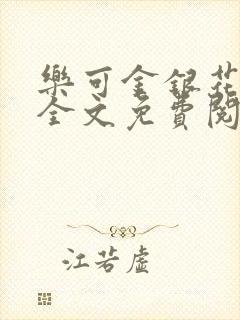 樂可金銀花
全文免費閱
江若虛